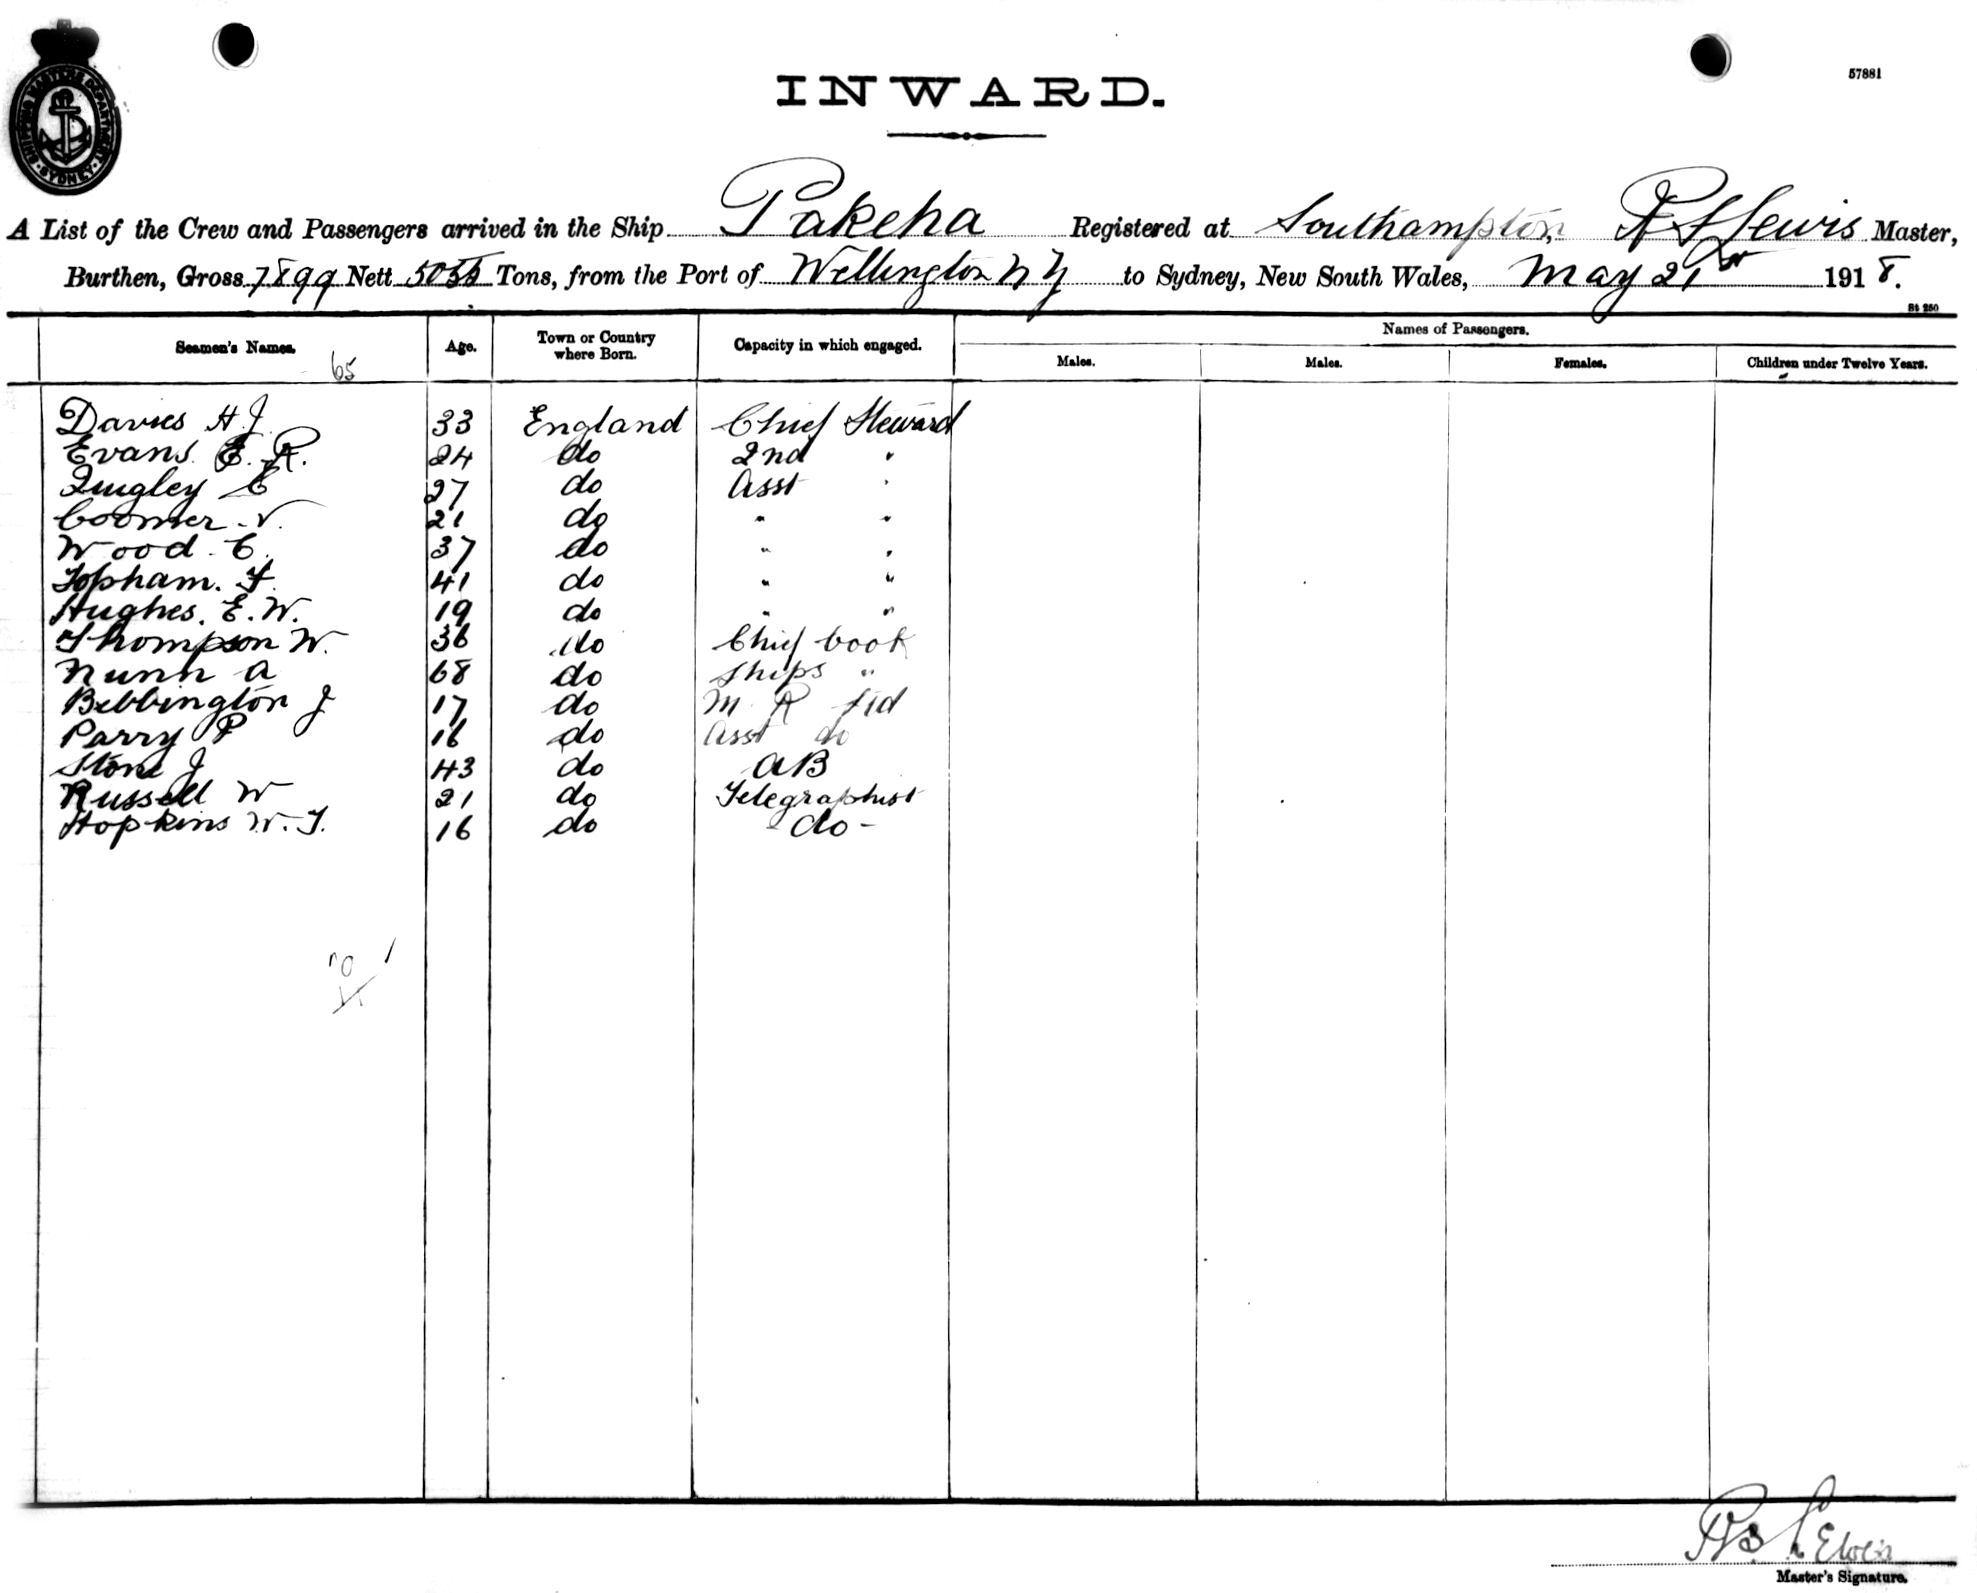 SHIPPING MASTERS DEPARTMENT SYDNEY
57881
INWARD.
A List of the Crew and Passengers arrived in the Ship Pakeha Registered at Southampton, Lewis Master,
Burthen, Gross 7899 Nett Tons, from the Port of Wellington N Z to Sydney, New South Wales, May 21st 1918.
St 250
Seamen's Names. Age. Town or Country where Born. Capacity in which engaged. Names of Passengers.
Males. Males. Females. Children under Twelve Years.
65
Davies H. J. 33 England Chief Steward
Evans E. R. 24 do 2nd "
Quigley C 27 do Asst "
Coomer V. 21 do " "
Wood C. 37 do " "
Topham. F. 41 do " "
Hughes. E. W. 19 do " "
Thompson W. 36 do Chief Cook
Nunn A 68 do Ships "
Bebbington J 17 do M R
Parry P 16 do Asst do
Stone J 43 do AB
Russell W 21 do Telegraphist
Hopkins W. T. 16 do - do -
Master's Signature.